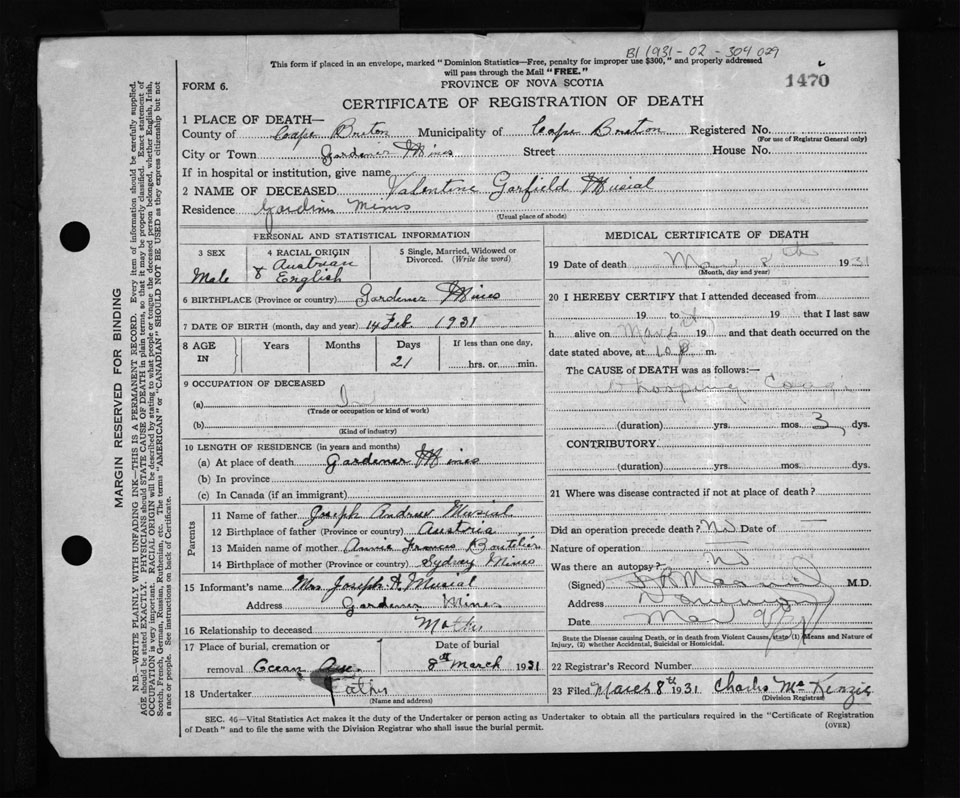 B1 1931-02-304 029
This form if placed in an envelope, marked "Dominion Statistics—Free, penalty for improper use $300," and properly addressed
will pass through the Mail "FREE."
1470
FORM 6.
PROVINCE OF NOVA SCOTIA
CERTIFICATE OF REGISTRATION OF DEATH
MARGIN RESERVED FOR BINDING
N.B.—WRITE PLAINLY WITH UNFADING INK—THIS IS A PERMANENT RECORD. Every item of information should be carefully supplied.
AGE should be stated EXACTLY. PHYSICIANS should STATE CAUSE OF DEATH in plain terms, so that it may be properly classified. Exact statement of
OCCUPATION is very important. RACIAL ORIGIN will be described by stating to what people or tongue the deceased person belonged, whether English, Irish,
Scotch, French, German, Russian, Ruthenian, etc. The terms "AMERICAN" or "CANADIAN" SHOULD NOT BE USED as they express citizenship but not
a race or people. See instructions on back of Certificate.
1 PLACE OF DEATH—
County of Cape Breton Municipality of Cape Breton Registered No.
(For use of Registrar General only)
City or Town Gardener Mines Street House No.
If in hospital or institution, give name
2 NAME OF DECEASED Valentine Garfield Musial
Residence Gardiner Mines
(Usual place of abode)
PERSONAL AND STATISTICAL INFORMATION
3 SEX
Male
4 RACIAL ORIGIN
Austrian
& English
5 Single, Married, Widowed or
Divorced. (Write the word)
6 BIRTHPLACE (Province or country) Gardener Mines
7 DATE OF BIRTH (month, day and year) 14 Feb. 1931
8 AGE
IN
Years Months Days If less than one day,
21 hrs. or min.
9 OCCUPATION OF DECEASED
(a)
(Trade or occupation or kind of work)
(b)
(Kind of industry)
10 LENGTH OF RESIDENCE (in years and months)
(a) At place of death Gardener Mines
(b) In province
(c) In Canada (if an immigrant)
Parents
11 Name of father Joseph Andrew Musial
12 Birthplace of father (Province or country) Austria
13 Maiden name of mother Annie Frances Boutilier
14 Birthplace of mother (Province or country) Sydney Mines
15 Informant's name Mrs Joseph A. Musial
Address Gardener Mines
16 Relationship to deceased Mother
17 Place of burial, cremation or Date of burial
removal Ocean Ave. 8th March 1931
18 Undertaker Father
(Name and address)
MEDICAL CERTIFICATE OF DEATH
19 Date of death Mar 8th 1931
(Month, day and year)
20 I HEREBY CERTIFY that I attended deceased from
19 to 19 that I last saw
h alive on Mar 19 and that death occurred on
date stated above, at 10 P m.
The CAUSE of DEATH was as follows:—
Whooping Cough
(duration) yrs. mos. 3 dys.
CONTRIBUTORY
(duration) yrs. mos. dys.
21 Where was disease contracted if not at place of death?
Did an operation precede death? No Date of —
Nature of operation —
Was there an autopsy? no
(Signed) M.D.
Address
Date Mar
State the Disease causing Death, or in death from Violent Causes, state (1) Means and Nature of
Injury, (2) whether Accidental, Suicidal or Homicidal.
22 Registrar's Record Number
23 Filed March 8th 1931 Charles McKenzie
(Division Registrar)
SEC. 46—Vital Statistics Act makes it the duty of the Undertaker or person acting as Undertaker to obtain all the particulars required in the "Certificate of Registration
of Death" and to file the same with the Division Registrar who shall issue the burial permit.
(OVER)